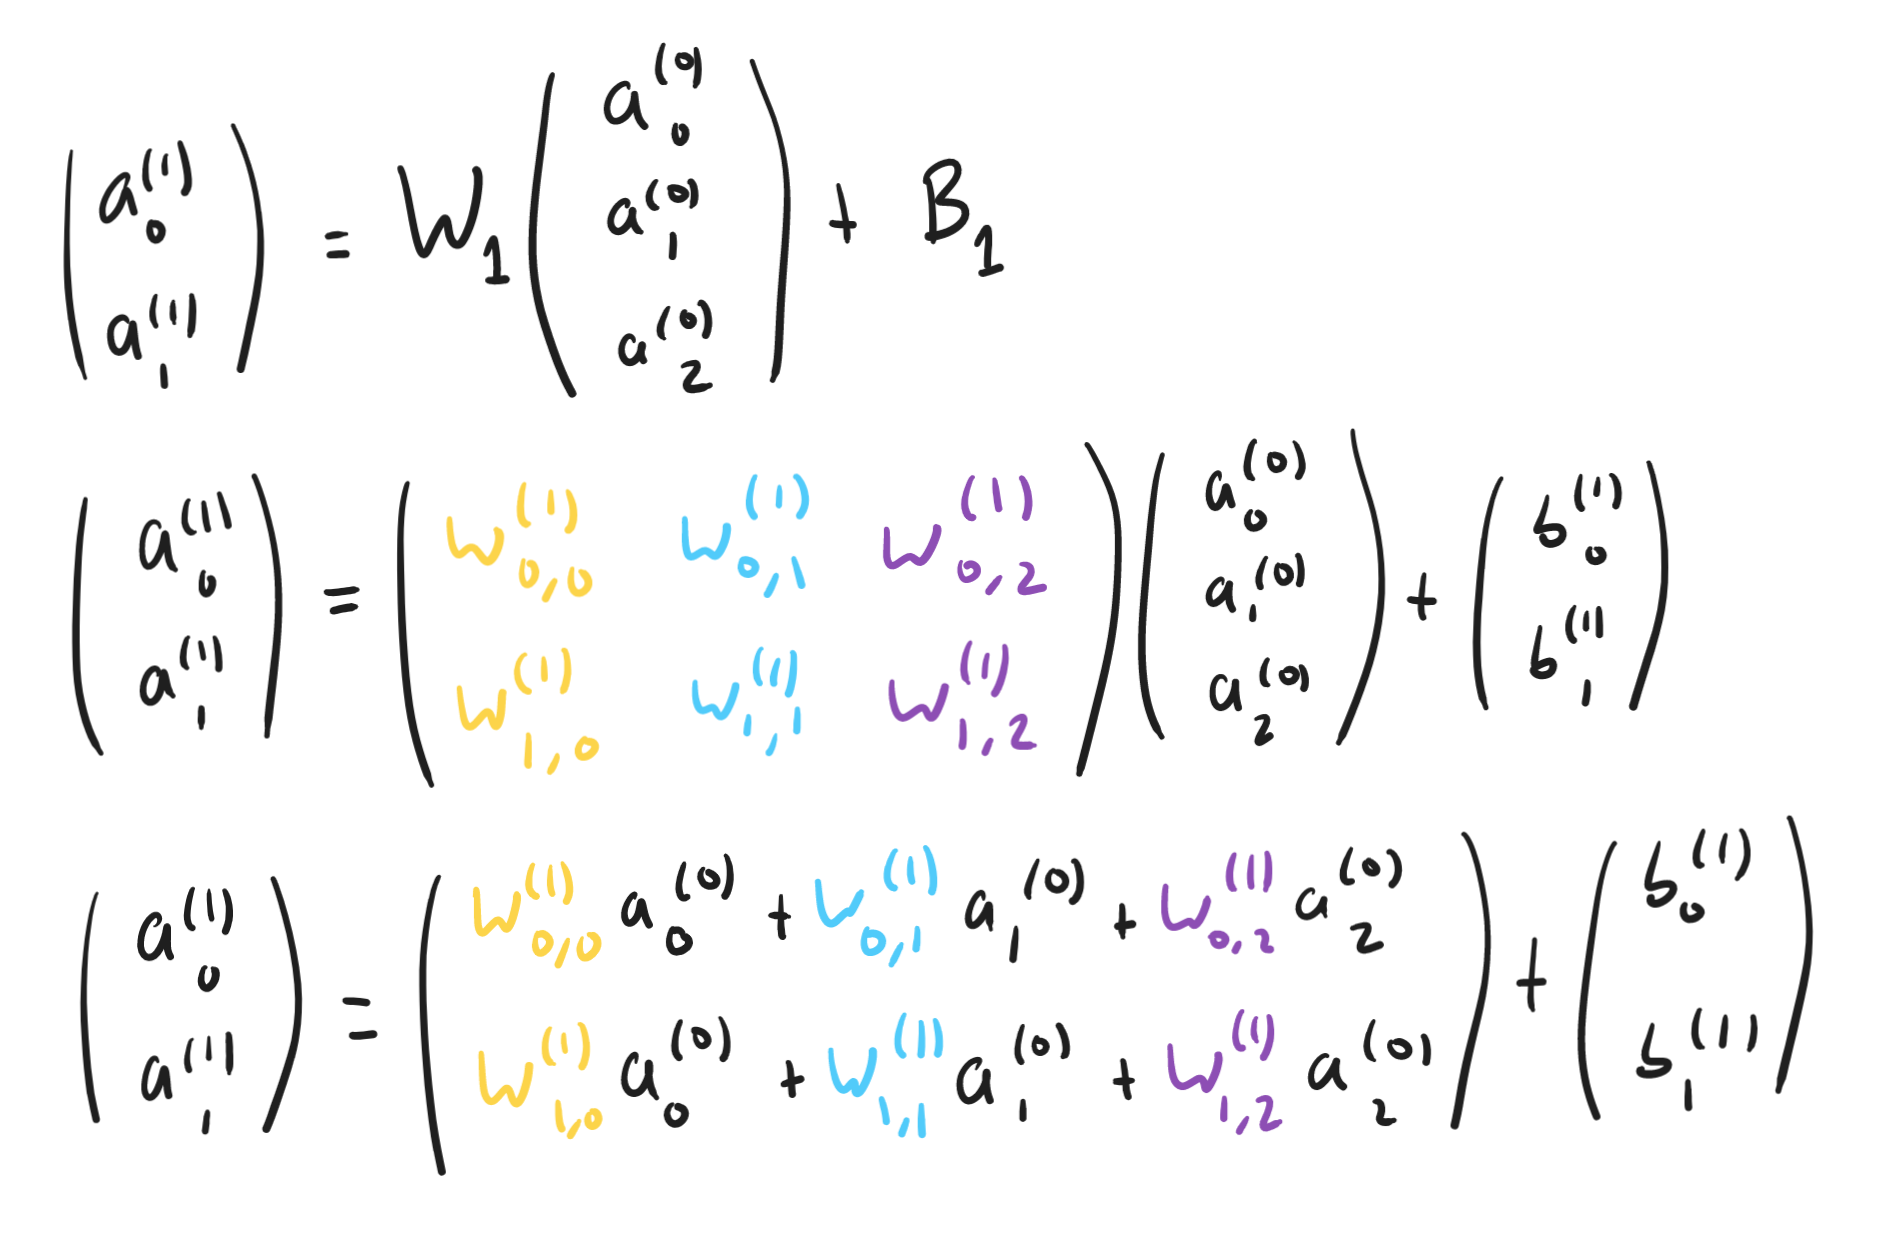 $\begin{pmatrix} a_0^{(1)} \\ a_1^{(1)} \end{pmatrix} = W_1 \begin{pmatrix} a_0^{(0)} \\ a_1^{(0)} \\ a_2^{(0)} \end{pmatrix} + B_1$
$\begin{pmatrix} a_0^{(1)} \\ a_1^{(1)} \end{pmatrix} = \begin{pmatrix} w_{0,0}^{(1)} & w_{0,1}^{(1)} & w_{0,2}^{(1)} \\ w_{1,0}^{(1)} & w_{1,1}^{(1)} & w_{1,2}^{(1)} \end{pmatrix} \begin{pmatrix} a_0^{(0)} \\ a_1^{(0)} \\ a_2^{(0)} \end{pmatrix} + \begin{pmatrix} b_0^{(1)} \\ b_1^{(1)} \end{pmatrix}$
$\begin{pmatrix} a_0^{(1)} \\ a_1^{(1)} \end{pmatrix} = \begin{pmatrix} w_{0,0}^{(1)} a_0^{(0)} + w_{0,1}^{(1)} a_1^{(0)} + w_{0,2}^{(1)} a_2^{(0)} \\ w_{1,0}^{(1)} a_0^{(0)} + w_{1,1}^{(1)} a_1^{(0)} + w_{1,2}^{(1)} a_2^{(0)} \end{pmatrix} + \begin{pmatrix} b_0^{(1)} \\ b_1^{(1)} \end{pmatrix}$